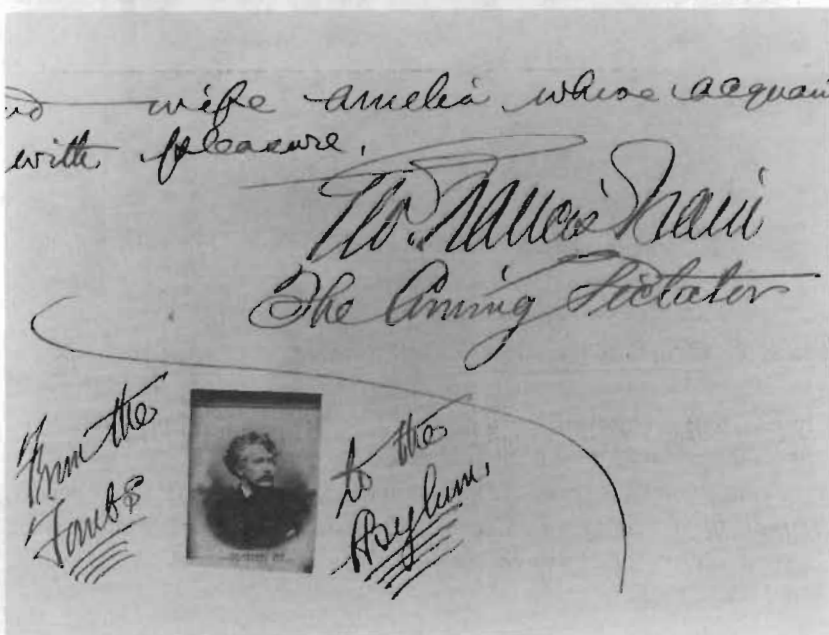 wife Amelia whose acquain
with pleasure.
Geo. Francis Train
The Coming Dictator
From the
Tombs
to the
Asylum.